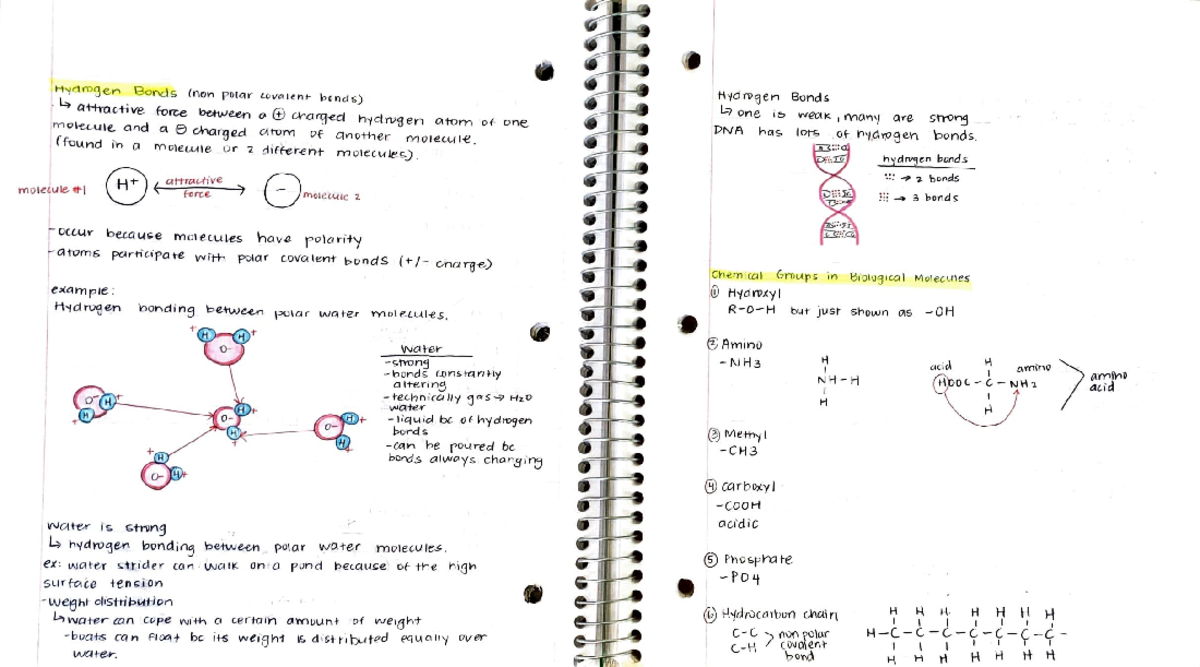 Hydrogen Bonds (non polar covalent bonds)
↳ attractive force between a ⊕ charged hydrogen atom of one
molecule and a ⊖ charged atom of another molecule.
(found in a molecule or 2 different molecules).
molecule #1
H+
attractive
force
-
molecule 2
-occur because molecules have polarity
-atoms participate with polar covalent bonds (+/- charge)
example:
Hydrogen bonding between polar water molecules.
+ H H +
O-
O- H +
H
+
O- H +
H
+
O- H +
H
+
+ H
O- H +
Water
-strong
-bonds constantly
altering
-technically gas → H2O
water
-liquid bc of hydrogen
bonds
-can be poured bc
bonds always changing
Water is strong
↳ hydrogen bonding between polar water molecules.
ex: water strider can walk on a pond because of the high
surface tension
-weight distribution
↳ water can cope with a certain amount of weight
-boats can float bc its weight is distributed equally over
water.
Hydrogen Bonds
↳ one is weak, many are strong
DNA has lots of hydrogen bonds.
hydrogen bonds
→ 2 bonds
→ 3 bonds
Chemical Groups in Biological Molecules
① Hydroxyl
R-O-H but just shown as -OH
② Amino
-NH3
H
NH-H
H
acid H amino
HOOC-C-NH2
H
amino
acid
③ Methyl
-CH3
④ carboxyl
-COOH
acidic
⑤ Phosphate
-PO4
⑥ Hydrocarbon chain
C-C
C-H
non polar
covalent
bond
H H H H H H H
H-C-C-C-C-C-C-C-
H H H H H H H